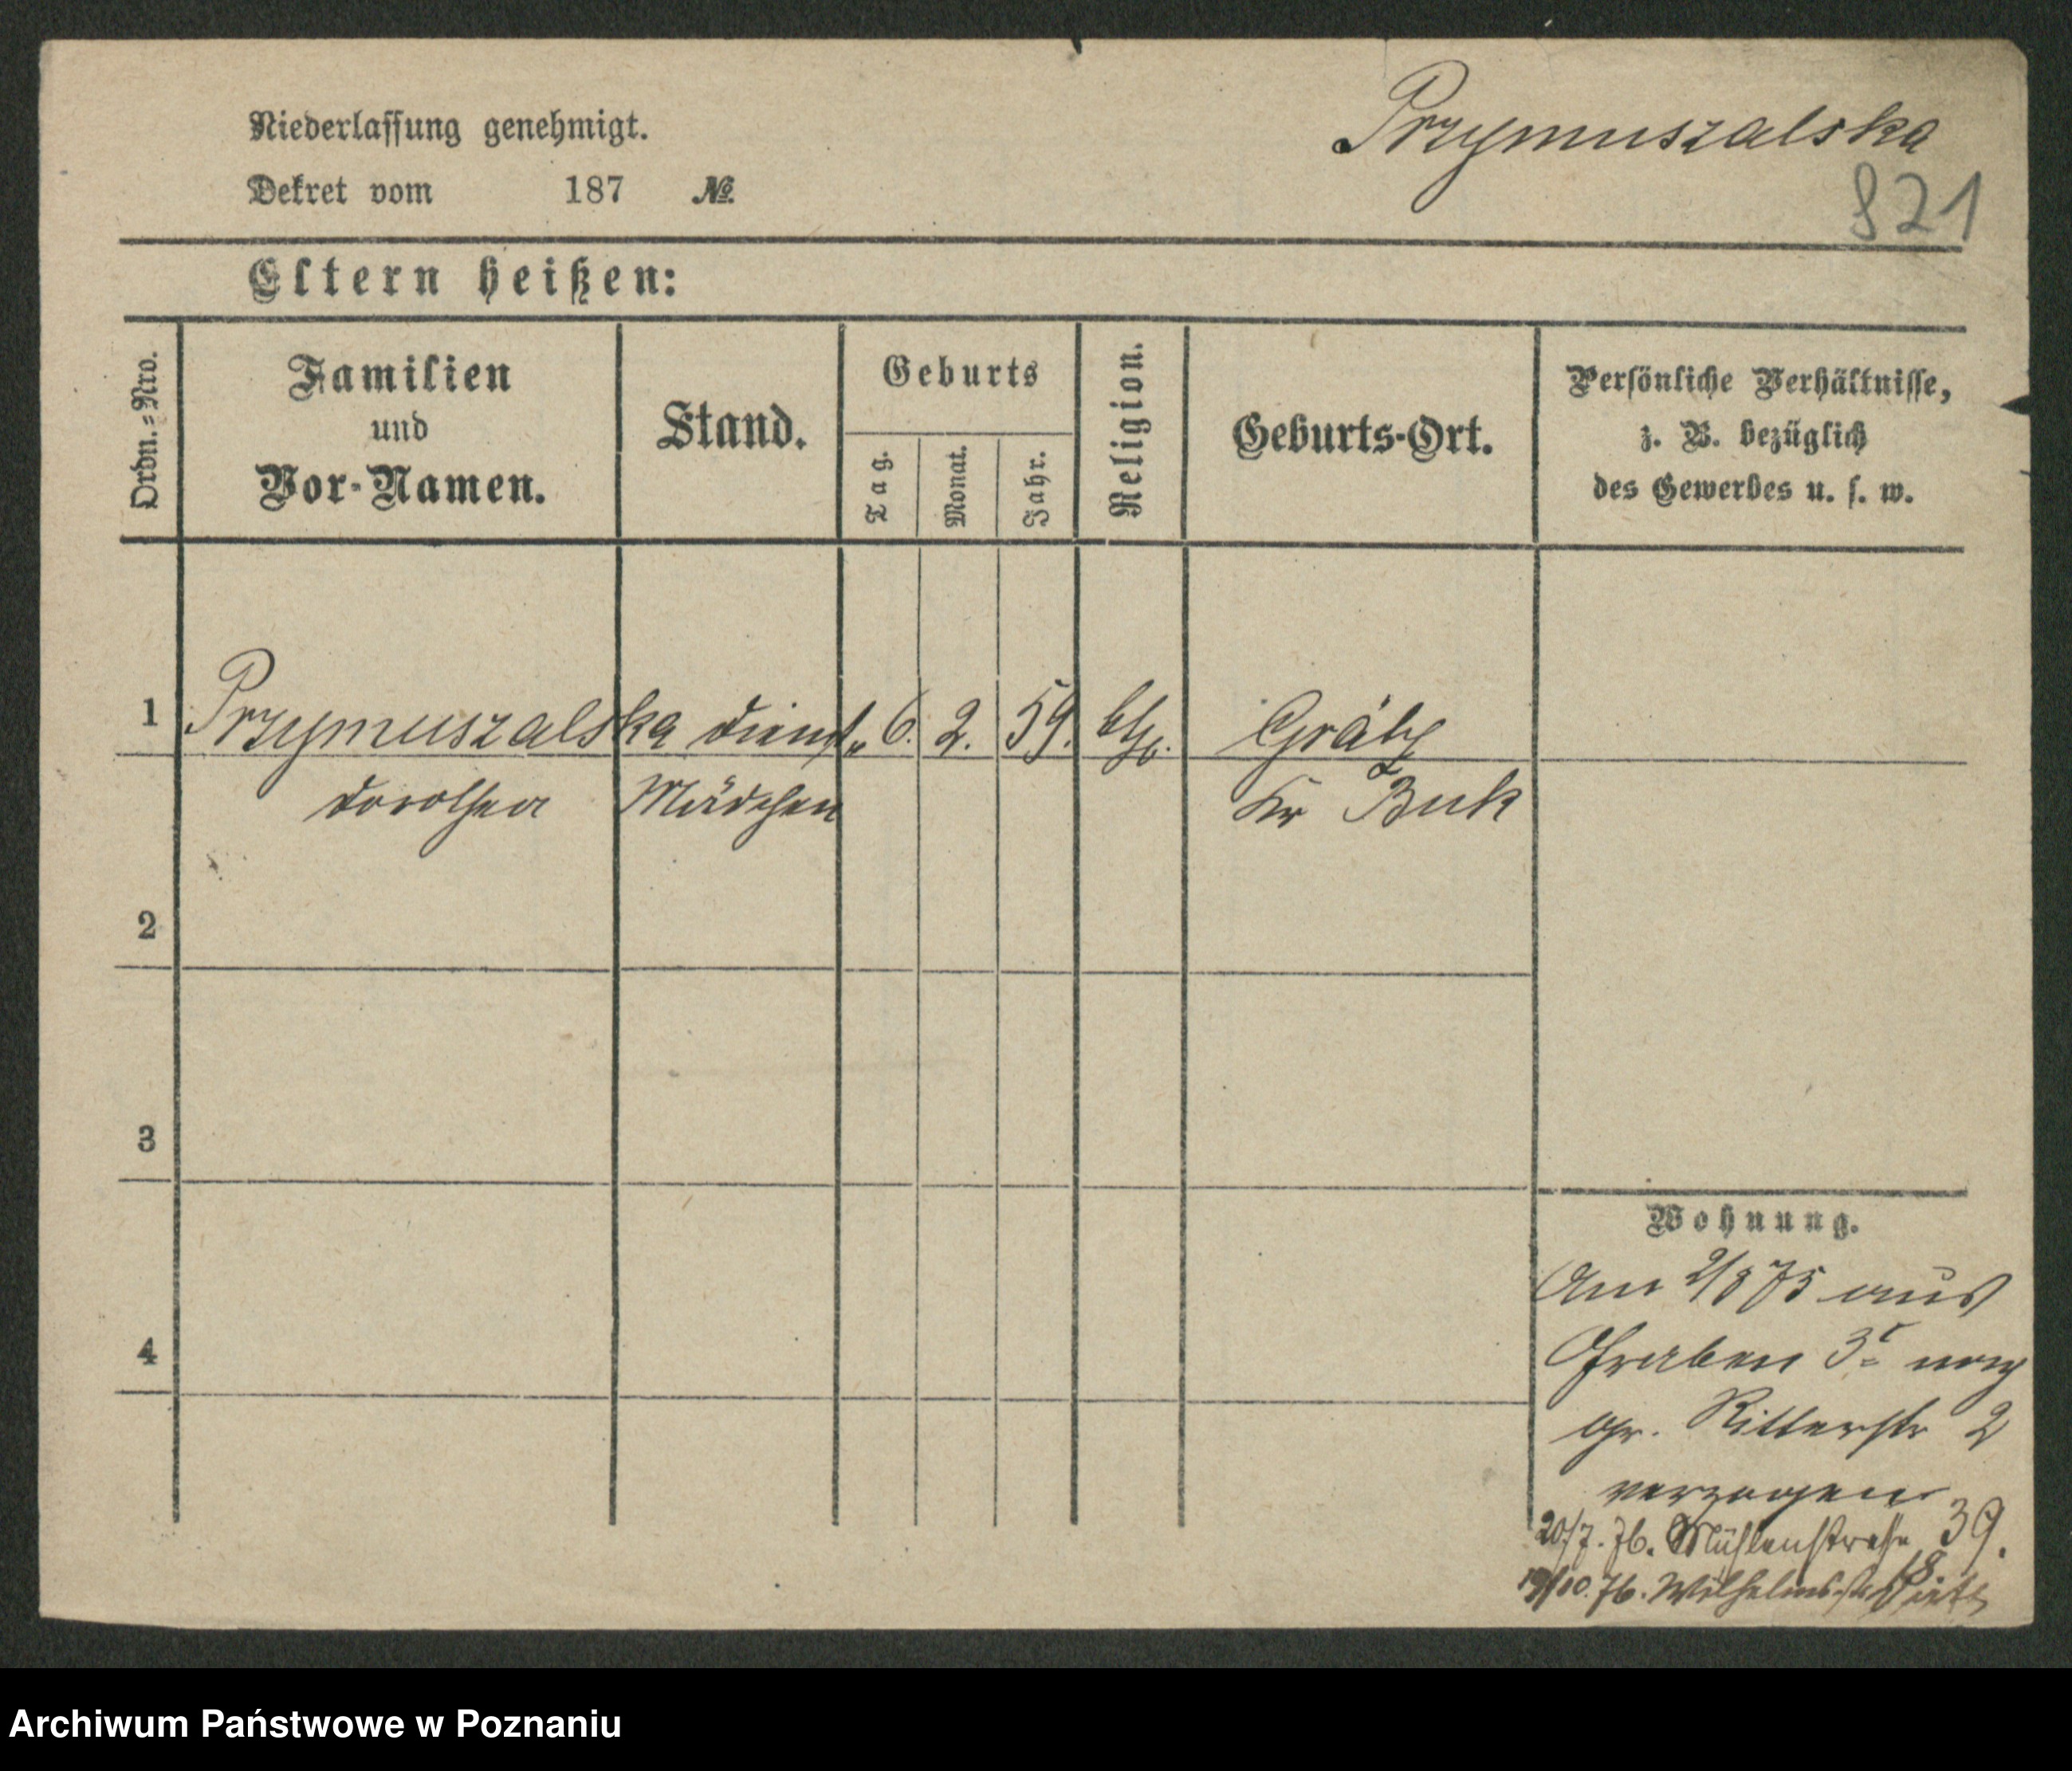 Przymuszalska
821
Niederlassung genehmigt.
Dekret vom 187 №
Eltern heißen:
Ordn.-Nro.
Familien und Vor-Namen.
Stand.
Geburts
Tag.
Monat.
Jahr.
Religion.
Geburts-Ort.
Persönliche Verhältnisse,
z. B. bezüglich
des Gewerbes u. s. w.
1 Przymuszalska Dienst„ 6. 2. 59. kth. Grätz
Dorothea Mädchen Kr Buk
2
3
4
Wohnung.
Am 2/8 75 aus
Graben 3 nach
gr. Ritterstr 2
verzogen
20/7. 76. Mühlenstraße 39.
10. 76. Wilhelmsstr 18
Archiwum Państwowe w Poznaniu